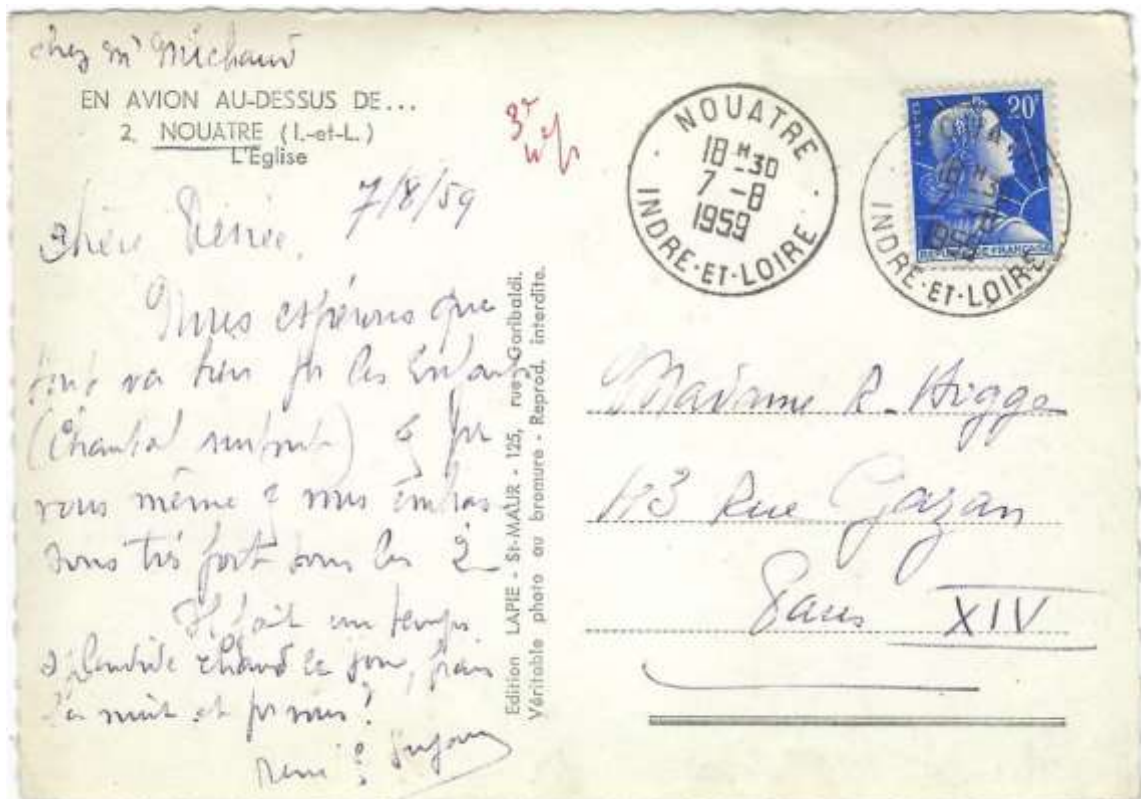 chez Mr Michaud
EN AVION AU-DESSUS DE...
2. NOUATRE (I.-et-L.)
L'Eglise
7/8/59
chère
Nous espérons que
tout va bien pr les Enfants
(Chantal surtout) & pr
vous même & nous embras
sons très fort tous les 2
Il fait un temps
splendide chaud le jour, frais
la nuit et pr vous?
Edition LAPIE - St-MAUR - 125, rue Garibaldi.
Véritable photo au bromure - Reprod. interdite.
NOUATRE
18 H 30
7 - 8
1959
INDRE-ET-LOIRE
20F
POSTES
REPUBLIQUE FRANÇAISE
18 H 30
1959
INDRE-ET-LOIRE
Madame R. Higgs
Rue Gazan
Paris XIV